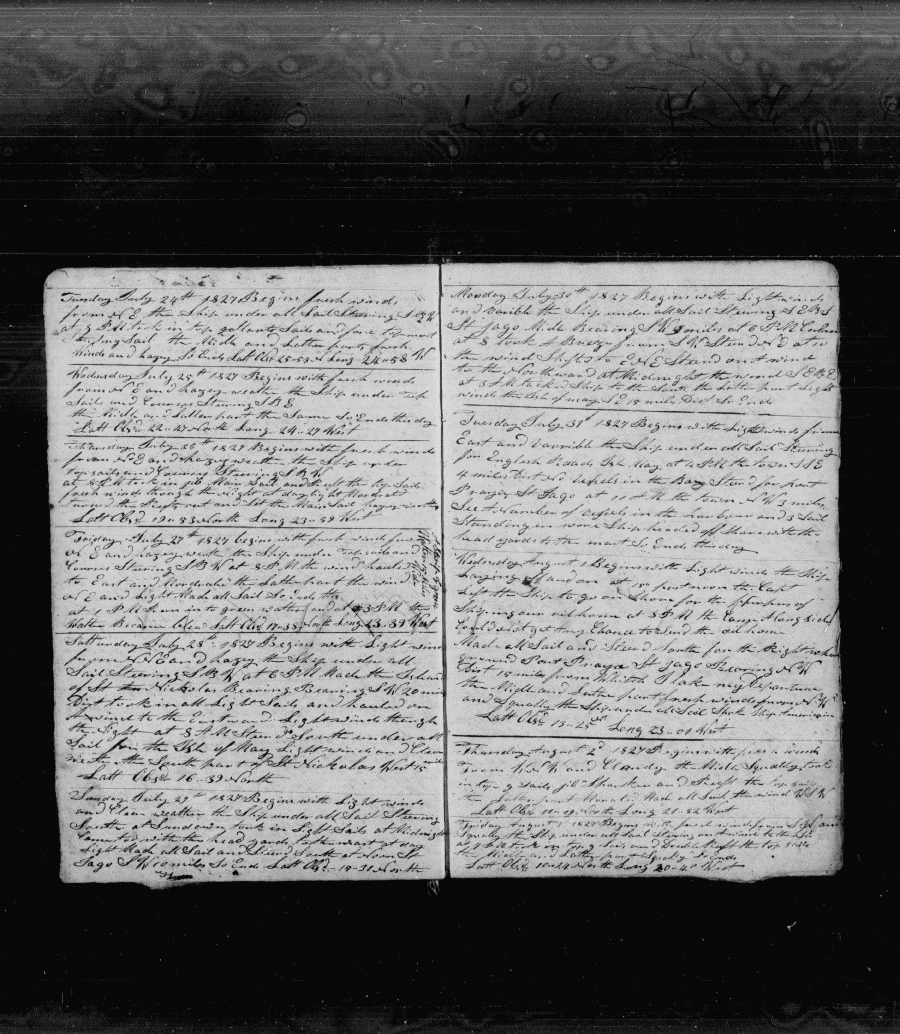 Tuesday July 24th 1827 Begins fresh winds
from N E the Ship under all Sail Steering S B W
at 7 P M took in top gallant Sails and fore topmast
Studing Sail the Midle and Latter parts fresh
winds and hazy So Ends Latt Obs 25-54 N Long 24-58 W
Wednesday July 25th 1827 Begins with fresh winds
from N E and hazy weather the Ship under top
Sails and Courses Steering S B E
the Midle and Latter part the Same So Ends this day
Latt Obsd 22-27 North Long 24-27 West
Thursday July 26th 1827 Begins with fresh winds
from N E and hazy weather the Ship under
topsails and Coursing Steering S B W
at 8 P M took in jib Main Sail and Reeft the top Sails
fresh winds through the Night at daylight Moderate
turned the Reefs out and Set the Main Sail hazy weather
Latt Obsd 19-53 North Long 23-59 West
Friday July 27th 1827 begins with fresh winds from
N E and hazy weath the Ship under Topsails and
Courses Stearing S B W at 8 P M the wind hauled
to East and Moderate the Latter part the wind
N E and Light Made all Sail So Ends the
at 1 P M Run in to green water and at 3 P M the
Watter Became blew Latt Obsd 17-58 North Long 23-39 West
Satturday July 28th 1827 Begins with Light winds
from N E and hazy the Ship under all
Sail Steering S B W at 6 P M Made the Island
of St Nickolas Bearing Bearing S W 20 miles
Dist took in all Light Sails and hauled on
A wind to the Eastward Light winds through
the Night at 8 A M Steerd South under all
Sail for the Isle of May Light winds and Clear
weath the South part of St Nickolas West 15 mile
Latt Obsd 16-39 North
Sunday July 29th 1827 Begins with Light winds
and Clear weather the Ship under all Sail Steering
South at Sundown took in Light Sails at Midnight
with the head yards back at day
Light Made all Sail and Steerd South at Noon St
Jago S W miles So Ends Latt Obsd 15-31 North
Monday July 30th 1827 Begins with Light winds
and Varible the Ship under all Sail Steering S E B S
St Jago Midle Bearing S W 9 miles at 6 P M Calm
at 8 took A Breeze from S W Steerd N E at 10
the wind Shifted to E N E Stand on A wind
to the Northward at Midnight the wind S E B E
at 8 A M tacked Ship to the South the Latter part Light
winds the Isle of May S E 15 miles Dist So Ends
Tuesday July 31st 1827 Begins with Light winds from
East and Varrible the Ship under all Sail Steering
for English Roads Isle May at 4 P M the town S S E
4 miles Dist No vessels in the Bay Steerd for port
Prayer St Jago at 11 A M the town N W 3 miles
See A Number of vessels in the harbour and 3 Sail
Standing in wore Ship headed off Shore with the
head yards to the mast So Ends this day
Wednesday August 1 Begins with Light winds the Ship
Laying off and on at port the Capt
Left the Ship to go on Shore for the purpose of
Shiping our oil home at 8 P M he Came Along Side
Could not get Any Chance to Send the oil home
Made all Sail and Steerd South for the
ground Port Praya St Jago Bearing N W
Dist 15 miles from Which I take my departure
the Midle and Latter part fresh winds from N E
and Squally the Ship under all Sail Spoke Ship American
Latt Obsd 13-25 Long 23-01 West
Thursday August 2d 1827 Begins with fresh winds
from W N W and Cloudy the Midle Squally took
in top g Sails jib Spanker and Reeft the top Sails
the Latter part Moderate Made all Sail the wind W S W
Latt Obsd North Long 21-52 West
Friday August 1827 Begins with fresh winds from and
Squally the Ship under all Sail Steering on A wind to the
at 7 P M took in top g Sails and Double Reeft the top Sails
the Midle and Latter part Squaly So Ends
Latt Obsd 10-14 North Long 20-40 West